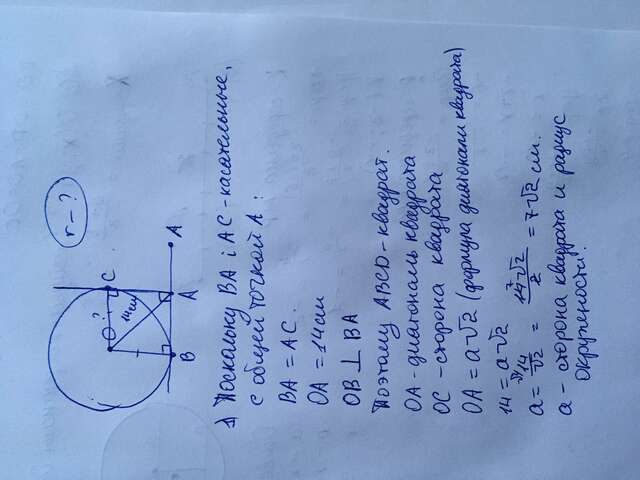 r - ?
O
?
C
14 см
B
A
A
1) Поскольку BA і AC - касательные,
с общей точкой A:
BA = AC.
OA = 14 см
OB ⊥ BA
Поэтому ABCD - квадрат.
OA - диагональ квадрата
OC - сторона квадрата
OA = a√2 (формула диагонали квадрата)
14 = a√2
a = √2 14/√2 = 7 14√2/2 = 7√2 см.
a - сторона квадрата и радиус
окружности.